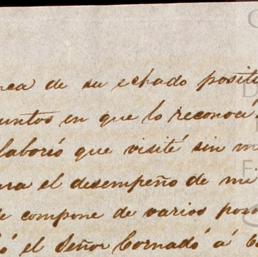 de su echado posit
untos en que lo reconoc
laborió que visité sin m
ra el desempeño de me
e compone de varios po
ó el Señor Cornadó á